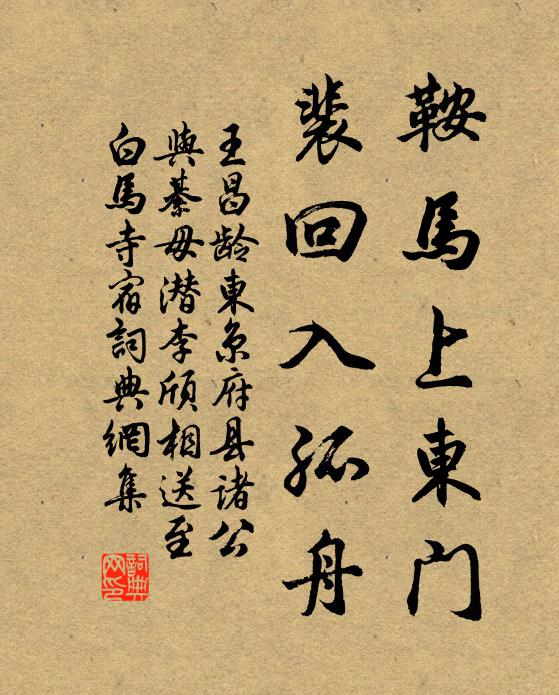 鞍馬上東门
裴回入孤舟
王昌龄東京府县諸公
與綦毋潜李颀相送至
白馬寺宿詞典網集
詞典网印